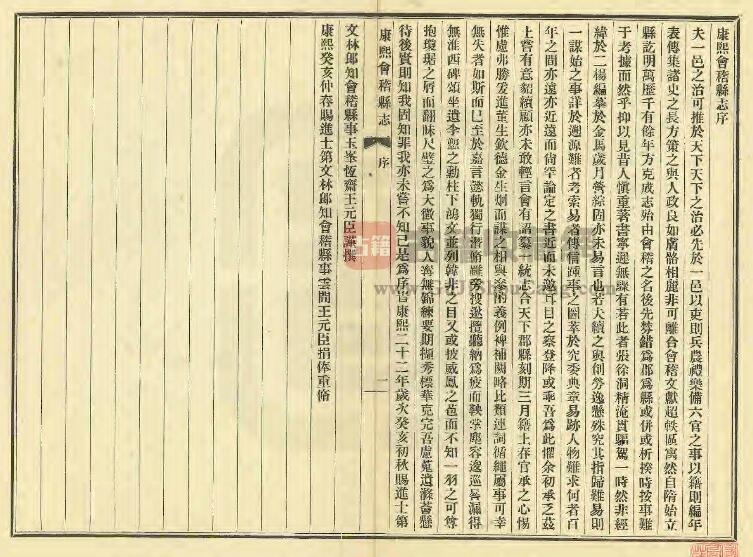 康熙會稽縣志序
夫一邑之治可推於天下天下之治必先於一邑以吏則兵農禮樂備六官之事以籍則編年
表傳集諸史之長方策之與人政良如膚骼相麗非可離合會稽文獻超軼區寓然自隋始立
縣訖明萬曆千有餘年方克成志殆由會稽之名後先棼錯為郡為縣或併或析揆時按事難
于考據而然乎抑以見昔人慎重著書寧遲無驟有若此者張徐洞精淹貫驅駕一時然非經
緯於二楊編摹於金馬歲月營綜固亦未易言也若夫續之與創勞逸懸殊究其指歸難易則
一謀始之事詳於遡源難者考索易者傳信踵事之圖莘於究委典章易跡人物難求何者百
年之間亦遠亦近遠而尚罕論定之書近而未邀耳目之察登降或乖吾為此懼余初承乏茲
土嘗有意紹續顧亦未敢輕言會有詔纂一統志合天下郡縣刻期三月籍上春官承之心惕
惟慮弗勝爰進董生欽德金生炯而謀之相與
義例裨補闕略比類連詞循繩屬事可幸
無失者如斯而已至於嘉言懿軌獨行潛脩羅
搜邀攬聽納為疲而鞅掌塵容逡巡晷漏得
無淮西碑頌坐遺李愬之勳柱下鴻文並列韓非之目又或披威鳳之苞而不知一羽之可尊
抱瓊琚之屑而翻昧尺璧之為大徵事貌人
無歸練要期擷秀標華克完吾慮蒐遺滌薈懸
待後賢則知我固知罪我亦未嘗不知已是為序旹康熙二十二年歲次癸亥初秋賜進士第
康熙會稽縣志
序
一
文林郎知會稽縣事玉峯恆齋王元臣謹撰
康熙癸亥仲春賜進士第文林郎知會稽縣事雲間王元臣捐俸重脩
古籍